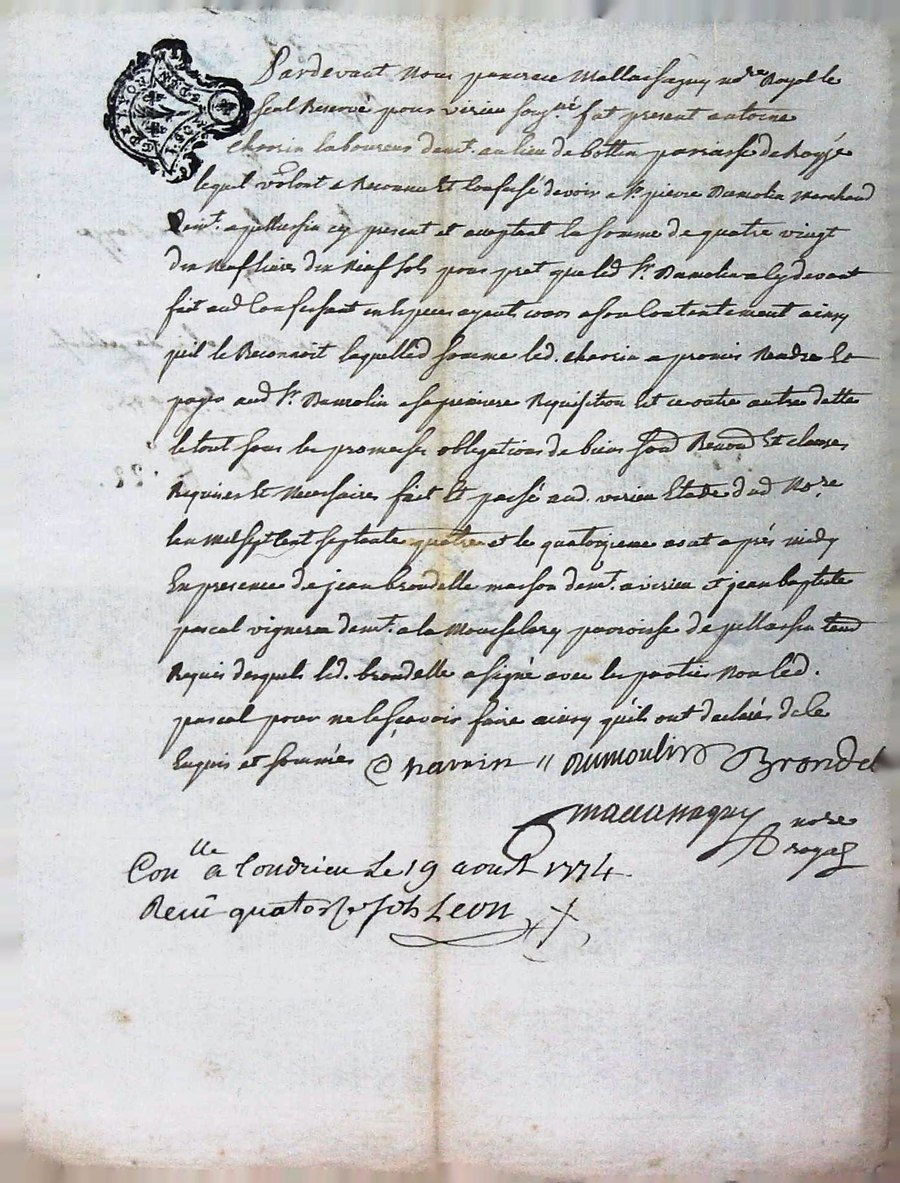 Pardevant Nous pancrace Mallassagny no.re Royal le
seul Reservé pour virieu sous.né fut present antoine
chavrin laboureur demt. au lieu de botten parroisse de
lequel volont a Reconnu Et Confessé devoir a sr. pierre Dumolin Marchand
demt. a pellussin cy present et acceptant la somme de quatre vingt
dix Neuf livres dix Neuf sols pour pret que led sr. Dumolin a cy devant
fait aud Confessant en especes ayant cours a son Contentement ainsy
quil le Reconnoit laquelled somme led. chavrin a promis Rendre Et
payer aud sr. Dumolin a sa premiere Requisition Et ce outre autre dette
le tout sous les promesses obligations de biens Et clauses
Requises Et Necessaires fait Et passé aud. virieu Etude dud No.re
lan mil sept Cent septante quatre et le quatorzieme aout après midy
En presence de jean brondelle masson demt. a virieu et jean baptiste
pascal vigneron demt. a la parroisse de pellussin
Requis desquels led. brondelle a signé avec les parties Non led.
pascal pour ne le scavoir faire ainsy quils ont declarés de le
Enquis et sommés Chavrin // Dumoulin Brondel
Mallassagny nore
royal
Conlle a Condrieu Le 19 aoust 1774
Receu quatorze sols Leon